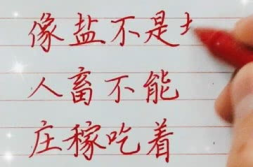 像盐不是
人畜不能
庄稼吃着